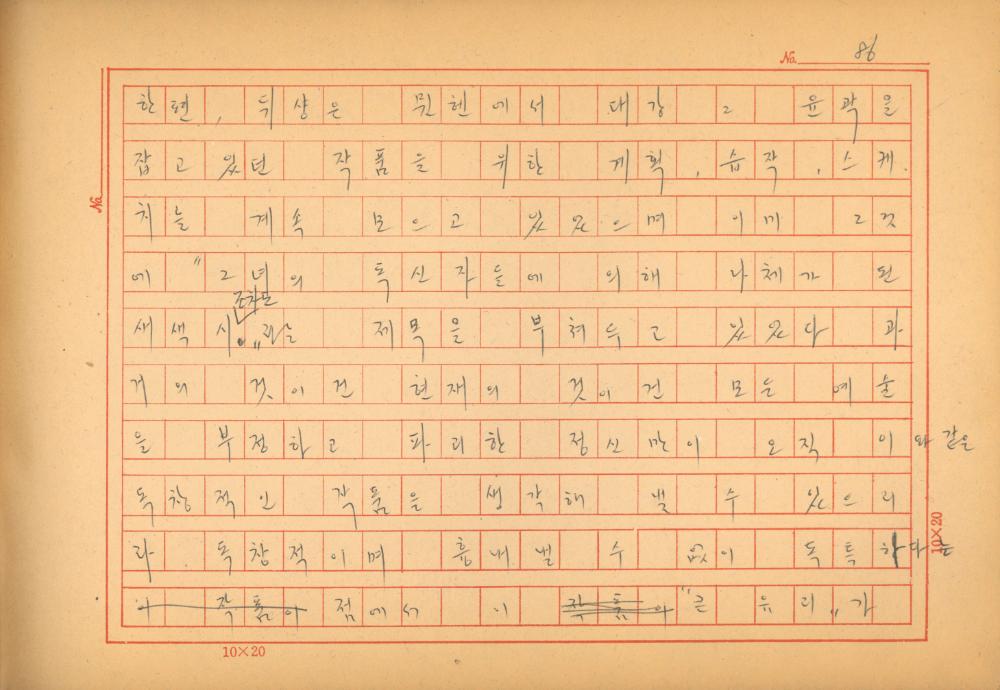 No. 86
한편, 뒤샹은 뮌헨에서 대강 그 윤곽을
잡고 있던 작품을 위한 계획, 습작, 스케
치늘 계속 모으고 있었으며 이미 그것
에 "그녀의 독신자들에 의해 나체가 된
조차도
새색시" 라는 제목을 부쳐두고 있었다 과
거의 것이건 현재의 것이건 모든 예술
을 부정하고 파괴한 정신만이 오직 이와 같은
독창적인 작품을 생각해 낼 수 있으리
라. 독창적이며 흉내낼 수 없이 독특하다는
이 작품이 점에서 이 작품이 "큰 유리"가
No.
10×20
10×20